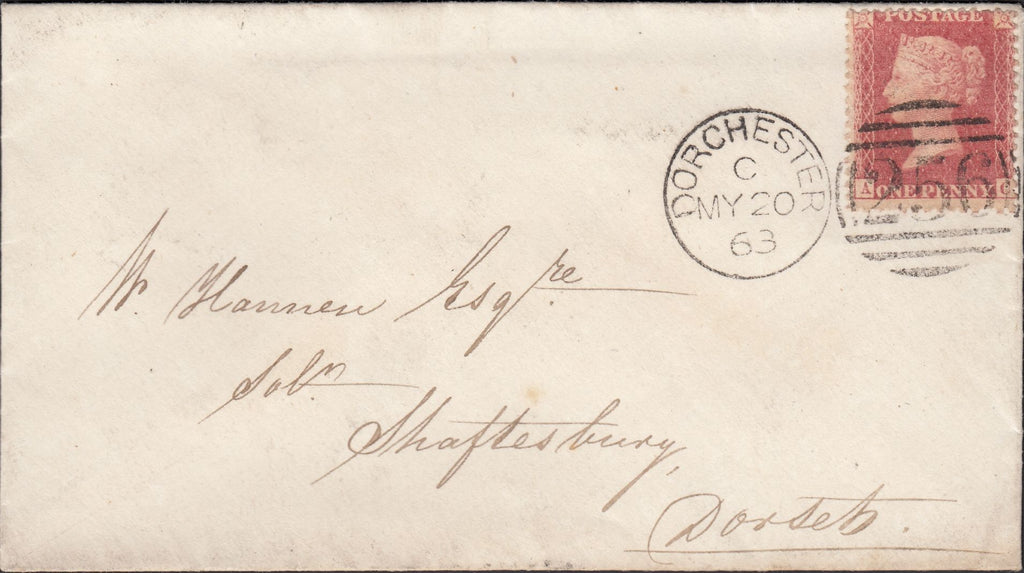 POSTAGE
A ONE PENNY G
256
DORCHESTER
C
MY 20
63
W. Hannen Esqre
Solr.
Shaftesbury,
Dorset.